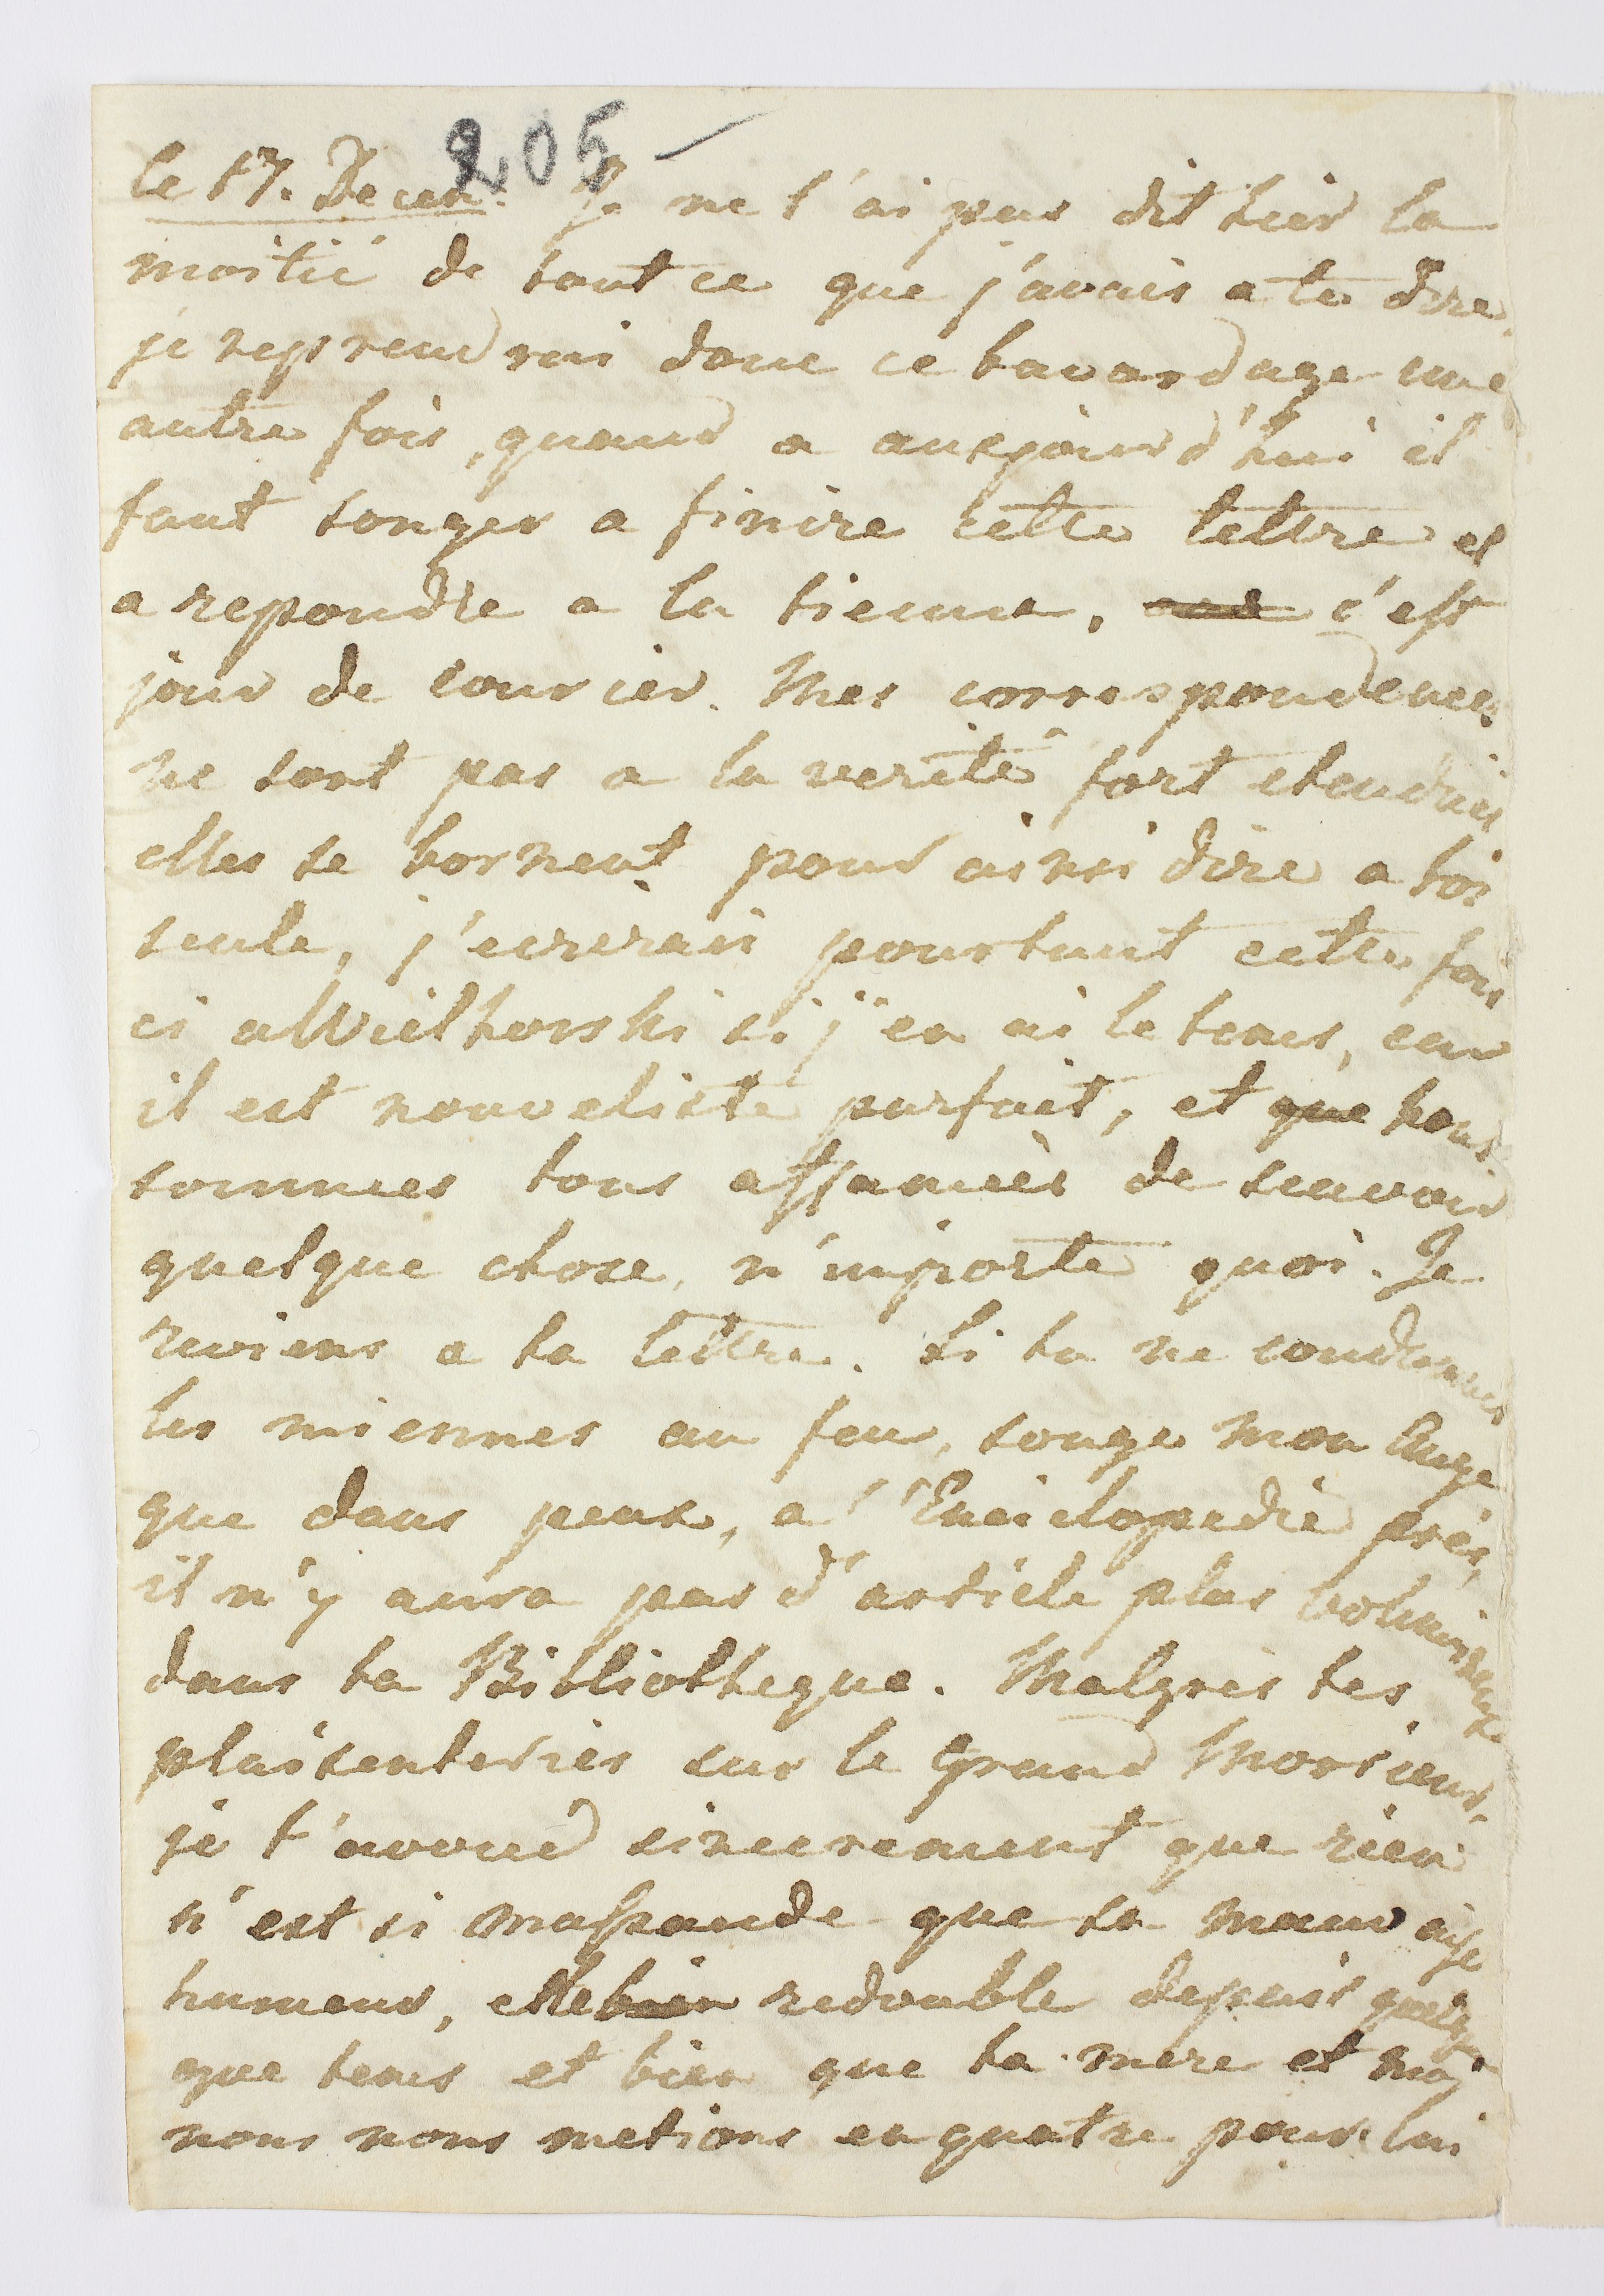 205 —
le 17. Decem: Je ne t'ai pas dit hier la
moitié de tout ce que j'avais a te dire,
je reprendrai donc ce bavardage une
autre fois, quand a aujourd'hui il
faut songer a finire cette lettre et
a repondre a la tienne, c'est
jour de courier. Mes correspondences
ne sont pas a la verité fort etendues
elles se bornent pour ainsi dire a toi
seule, j'ecrerais pourtant cette fois
ci a Wielhorski si j'en ai le tems, car
il est nouveliste parfait, et que nous
sommes tous affamés de scavoir
quelque chose, n'importe quoi. Je
reviens a ta lettre. Si tu ne condamnes
les miennes au feu, songe mon Ange
que dans peux, a l'Enciclopedie près,
il n'y aura pas d'article plus volumineux
dans ta Bibliotheque. Malgrés tes
plaisenteries sur le Grand
je t'avoue sincerement que rien
n'est si maussade que sa mauvaise
humeur, elle redouble depuis quelque
que tems et bien que ta mere et moi
nous nous metions en quatre pour lui